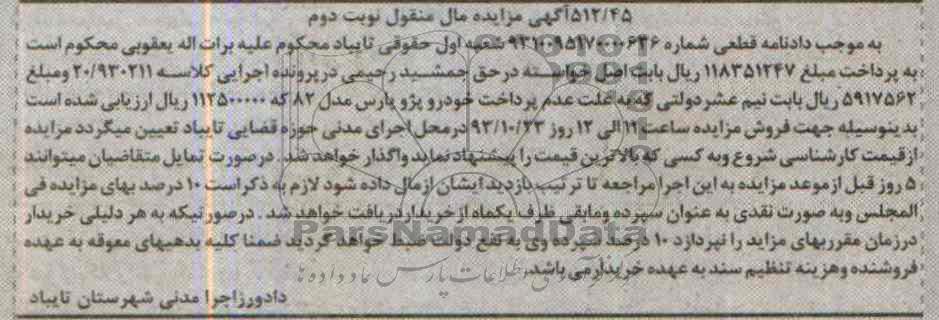 ۵۱۲/۴۵آگهی مزایده مال منقول نوبت دوم
به موجب دادنامه قطعی شماره ۹۳۱۰۰۹۵۱۷۰۰۰۰۶۳۶ شعبه اول حقوقی تایباد محکوم علیه برات اله یعقوبی محکوم است
به پرداخت مبلغ ۱۱۸۳۵۱۲۴۷ ریال بابت اصل خواسته در حق جمشید رحیمی در پرونده اجرایی کلاسه ۲۰/۹۳۰۲۱۱ ومبلغ
۵۹۱۷۵۶۲ ریال بابت نیم عشر دولتی که به علت عدم پرداخت خودرو پژو پارس مدل ۸۲ که ۱۱۲۵۰۰۰۰۰ ریال ارزیابی شده است
بدینوسیله جهت فروش مزایده ساعت ۱۱ الی ۱۲ روز ۹۳/۱۰/۲۳ در محل اجرای مدنی حوزه قضایی تایباد تعیین میگردد مزایده
از قیمت کارشناسی شروع وبه کسی که بالاترین قیمت را پیشنهاد نماید واگذار خواهد شد. در صورت تمایل متقاضیان میتوانند
۵ روز قبل از موعد مزایده به این اجرا مراجعه تا ترتیب بازدید ایشان از مال داده شود لازم به ذکر است ۱۰ درصد بهای مزایده فی
المجلس وبه صورت نقدی به عنوان سپرده ومابقی ظرف یکماه از خریدار دریافت خواهد شد . در صورتیکه به هر دلیلی خریدار
در زمان مقرر بهای مزاید را نپردازد ۱۰ درصد سپرده وی به نفع دولت ضبط خواهد گردید ضمنا کلیه بدهیهای معوقه به عهده
فروشنده وهزینه تنظیم سند به عهده خریدار می باشد.
دادورز اجرا مدنی شهرستان تایباد
ParsNamadData